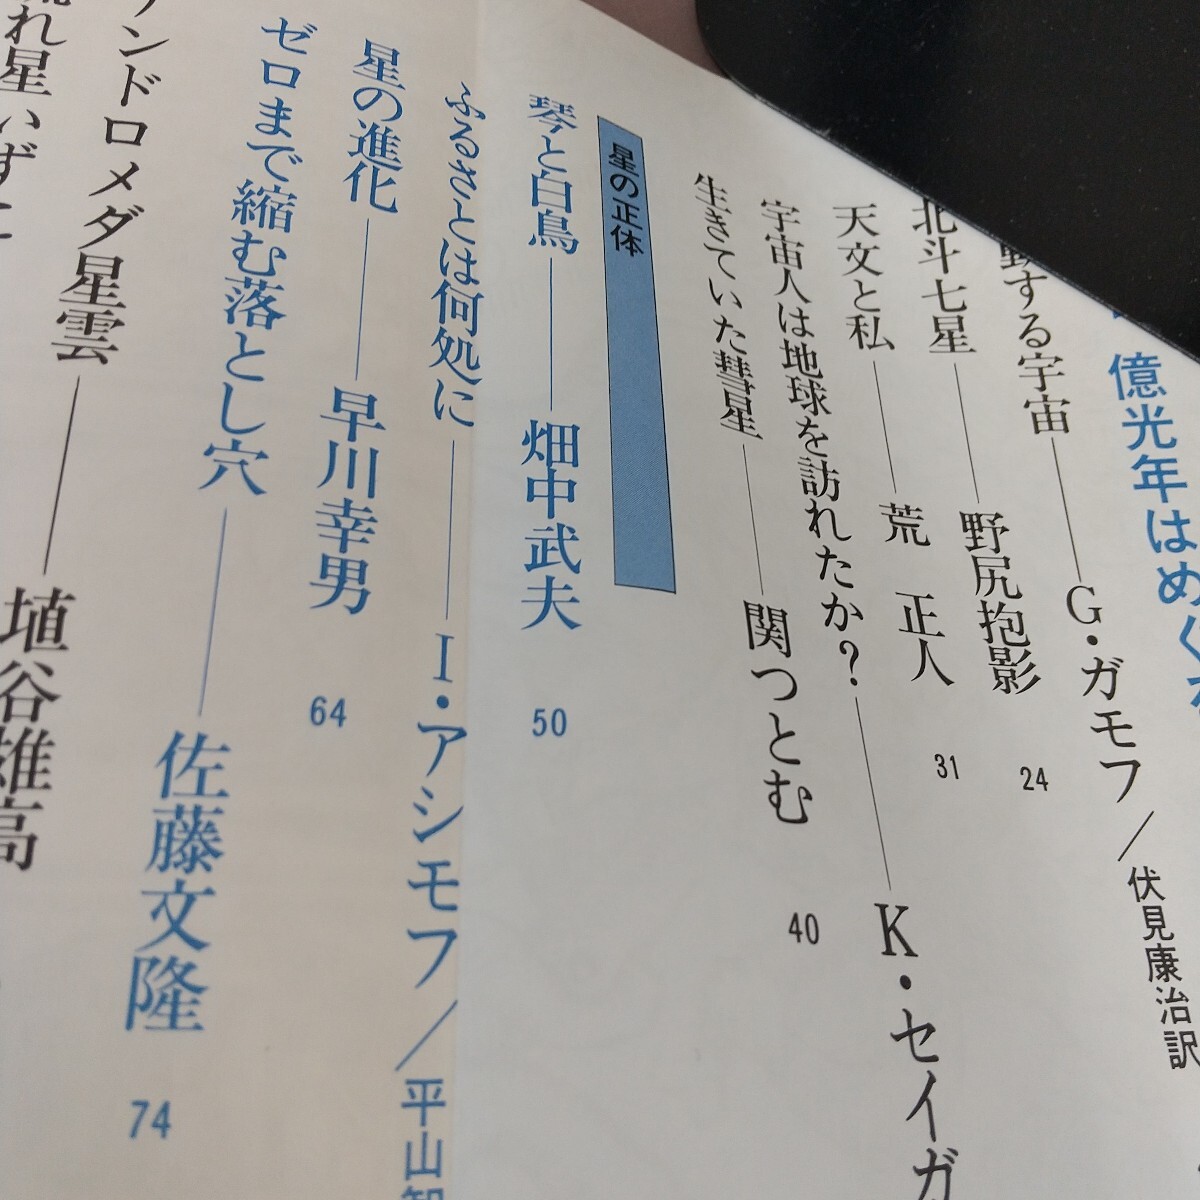 億光年はめぐる
動する宇宙――G・ガモフ/伏見康治訳
北斗七星――野尻抱影 24
天文と私――荒 正人 31
宇宙人は地球を訪れたか?――K・セイガ
生きていた彗星――関つとむ 40
星の正体
琴と白鳥――畑中武夫 50
ふるさとは何処に――I・アシモフ/平山智
星の進化――早川幸男 64
ゼロまで縮む落とし穴――佐藤文隆 74
ンドロメダ星雲――埴谷雄高
流れ星いずこ